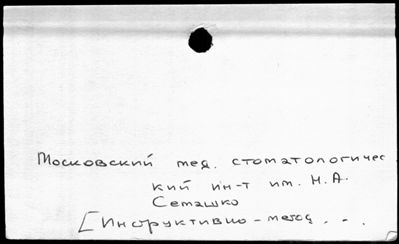 Московский мед. стоматологичес
кий ин-т им. Н.А.
Семашко
[Инструктивно-метод...